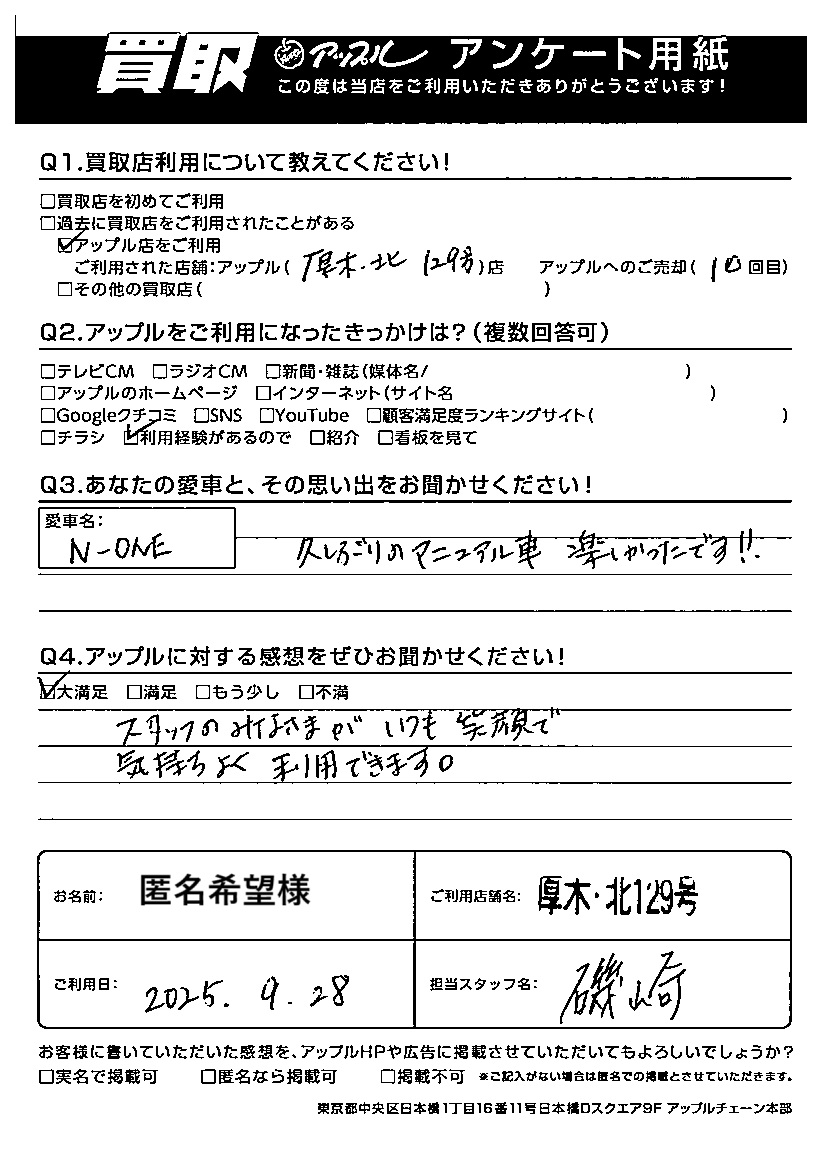 買取 アップル アンケート用紙
この度は当店をご利用いただきありがとうございます!
Q1.買取店利用について教えてください!
□買取店を初めてご利用
□過去に買取店をご利用されたことがある
☑アップル店をご利用
ご利用された店舗:アップル(厚木・北129号)店 アップルへのご売却(10回目)
□その他の買取店( )
Q2.アップルをご利用になったきっかけは?(複数回答可)
□テレビCM □ラジオCM □新聞・雑誌(媒体名/ )
□アップルのホームページ □インターネット(サイト名 )
□Googleクチコミ □SNS □YouTube □顧客満足度ランキングサイト( )
□チラシ ☑利用経験があるので □紹介 □看板を見て
Q3.あなたの愛車と、その思い出をお聞かせください!
愛車名:
N-ONE 久しぶりのマニュアル車 楽しかったです!!.
Q4.アップルに対する感想をぜひお聞かせください!
☑大満足 □満足 □もう少し □不満
スタッフのみなさまが いつも 笑顔で
気持ちよく 利用できます。
お名前: 匿名希望様 ご利用店舗名: 厚木・北129号
ご利用日: 2025. 9. 28 担当スタッフ名: 磯崎
お客様に書いていただいた感想を、アップルHPや広告に掲載させていただいてもよろしいでしょうか?
□実名で掲載可 □匿名なら掲載可 □掲載不可 ※ご記入がない場合は匿名での掲載とさせていただきます。
東京都中央区日本橋1丁目16番11号日本橋Dスクエア9F アップルチェーン本部